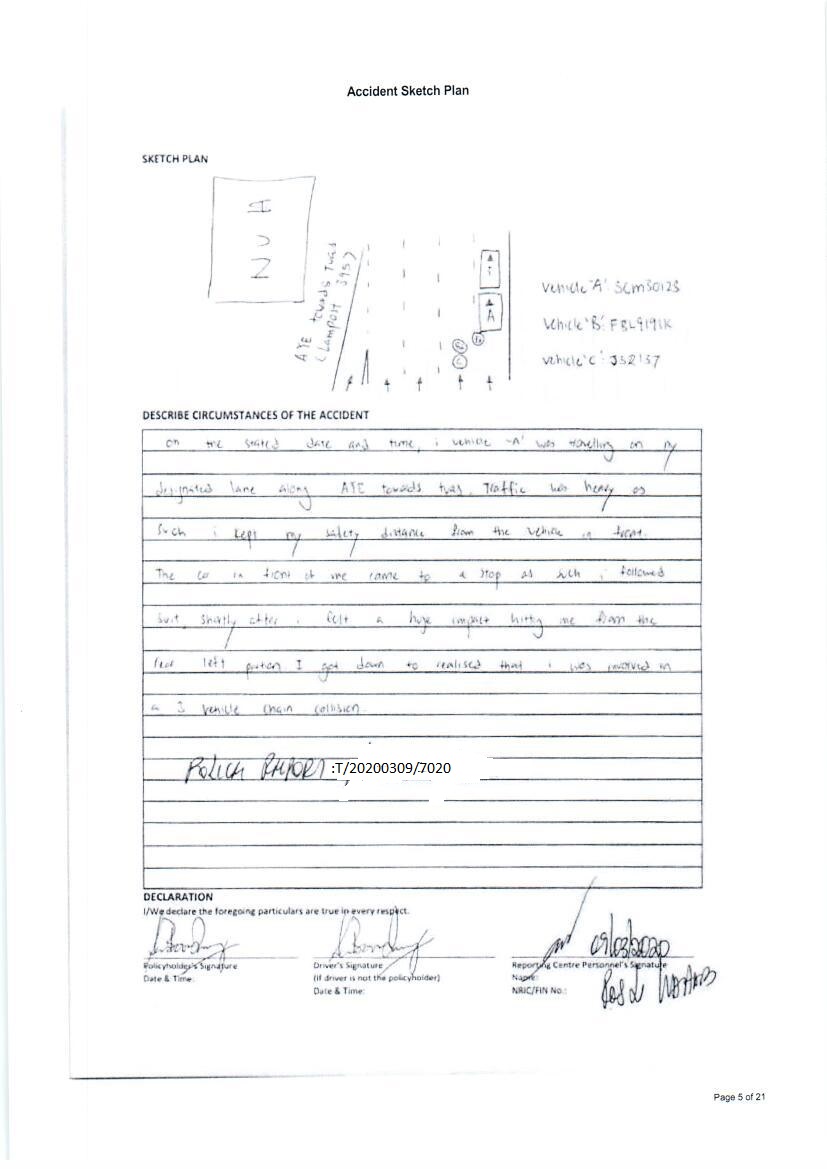 Accident Sketch Plan
SKETCH PLAN
AYE towads Tuas
(Lampost 395)
A
Vehicle 'A': SLM3012S
Vehicle 'B': FBL9191K
Vehicle 'C': JS2137
DESCRIBE CIRCUMSTANCES OF THE ACCIDENT
On the stated date and time, i vehicle 'A' was travelling on my
designated lane along AYE towads tuas. Traffic was heavy as
Such i kept my safety distance from the vehicle in front.
The car in front of me came to a stop as such i followed
suit. Shortly after i felt a huge impact hitting me from the
rear left portion. I got down to realised that i was involved in
a 3 vehicle chain collision.
POLICE REPORT :T/20200309/7020
DECLARATION
I/We declare the foregoing particulars are true in every respect.
09/03/2020
Policyholder's Signature
Driver's Signature
Reporting Centre Personnel's Signature
Date & Time:
(if driver is not the policyholder)
Name:
Date & Time:
NRIC/FIN No.:
Page 5 of 21